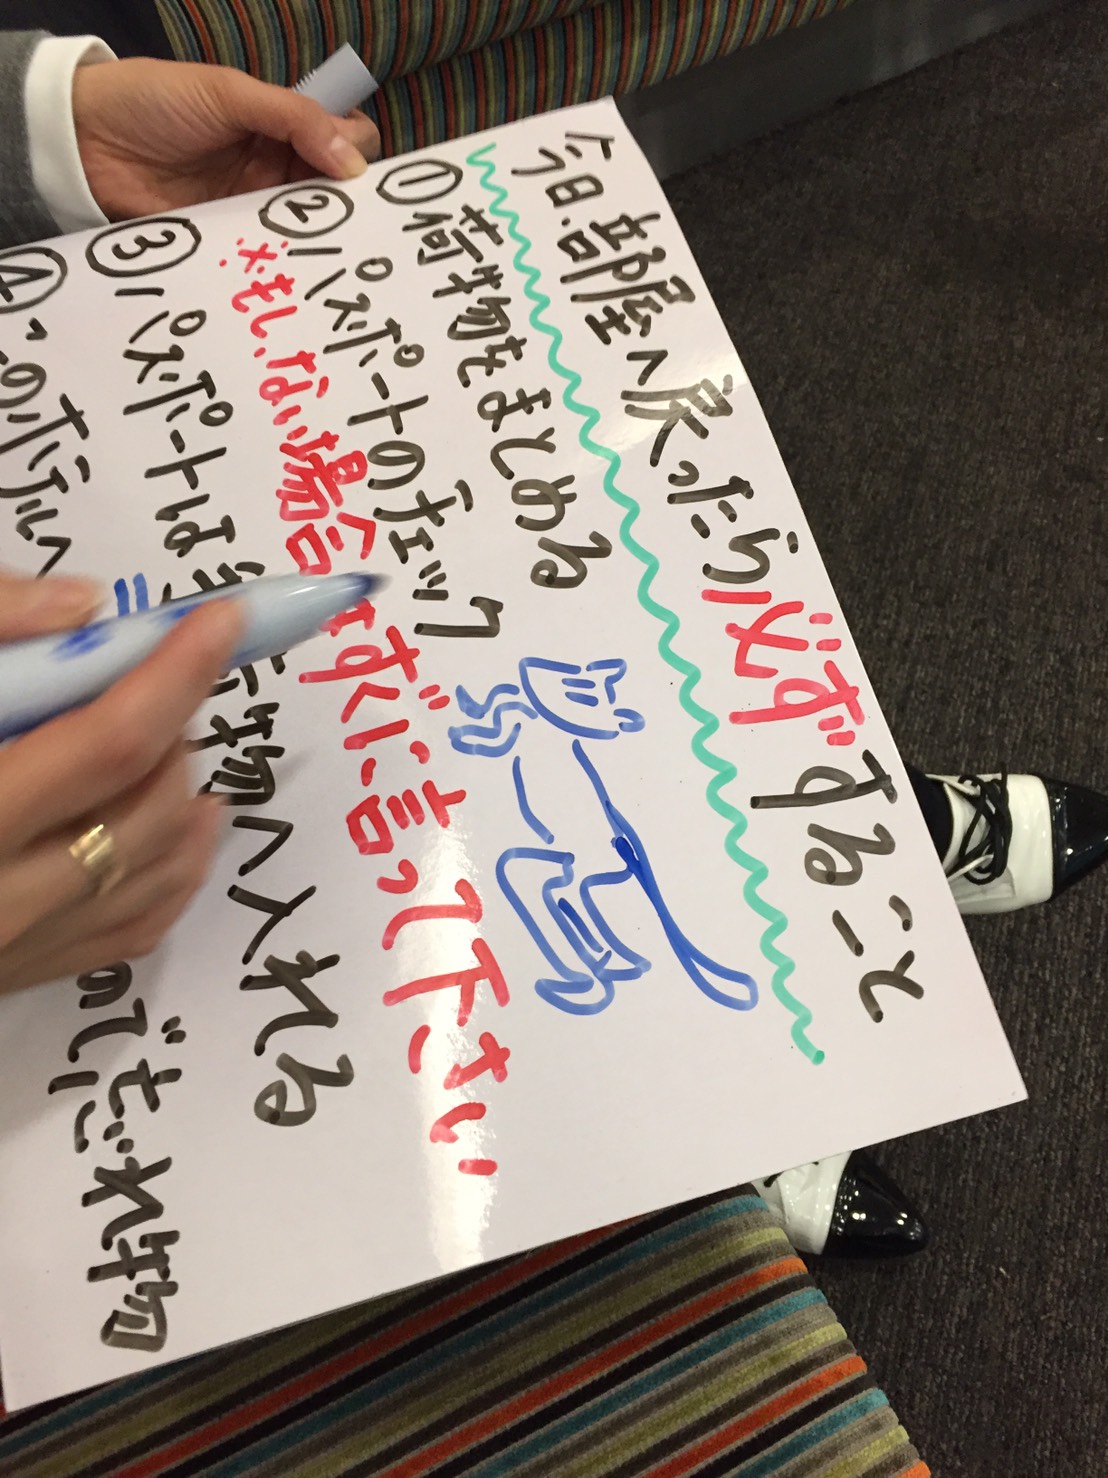 今日、部屋へ戻ったら必ずすること
① 荷物をまとめる
② パスポートのチェック
※もし、ない場合はすぐに言って下さい
③ パスポートは手荷物へ入れる
④ このホテルへ のでを忘れ物